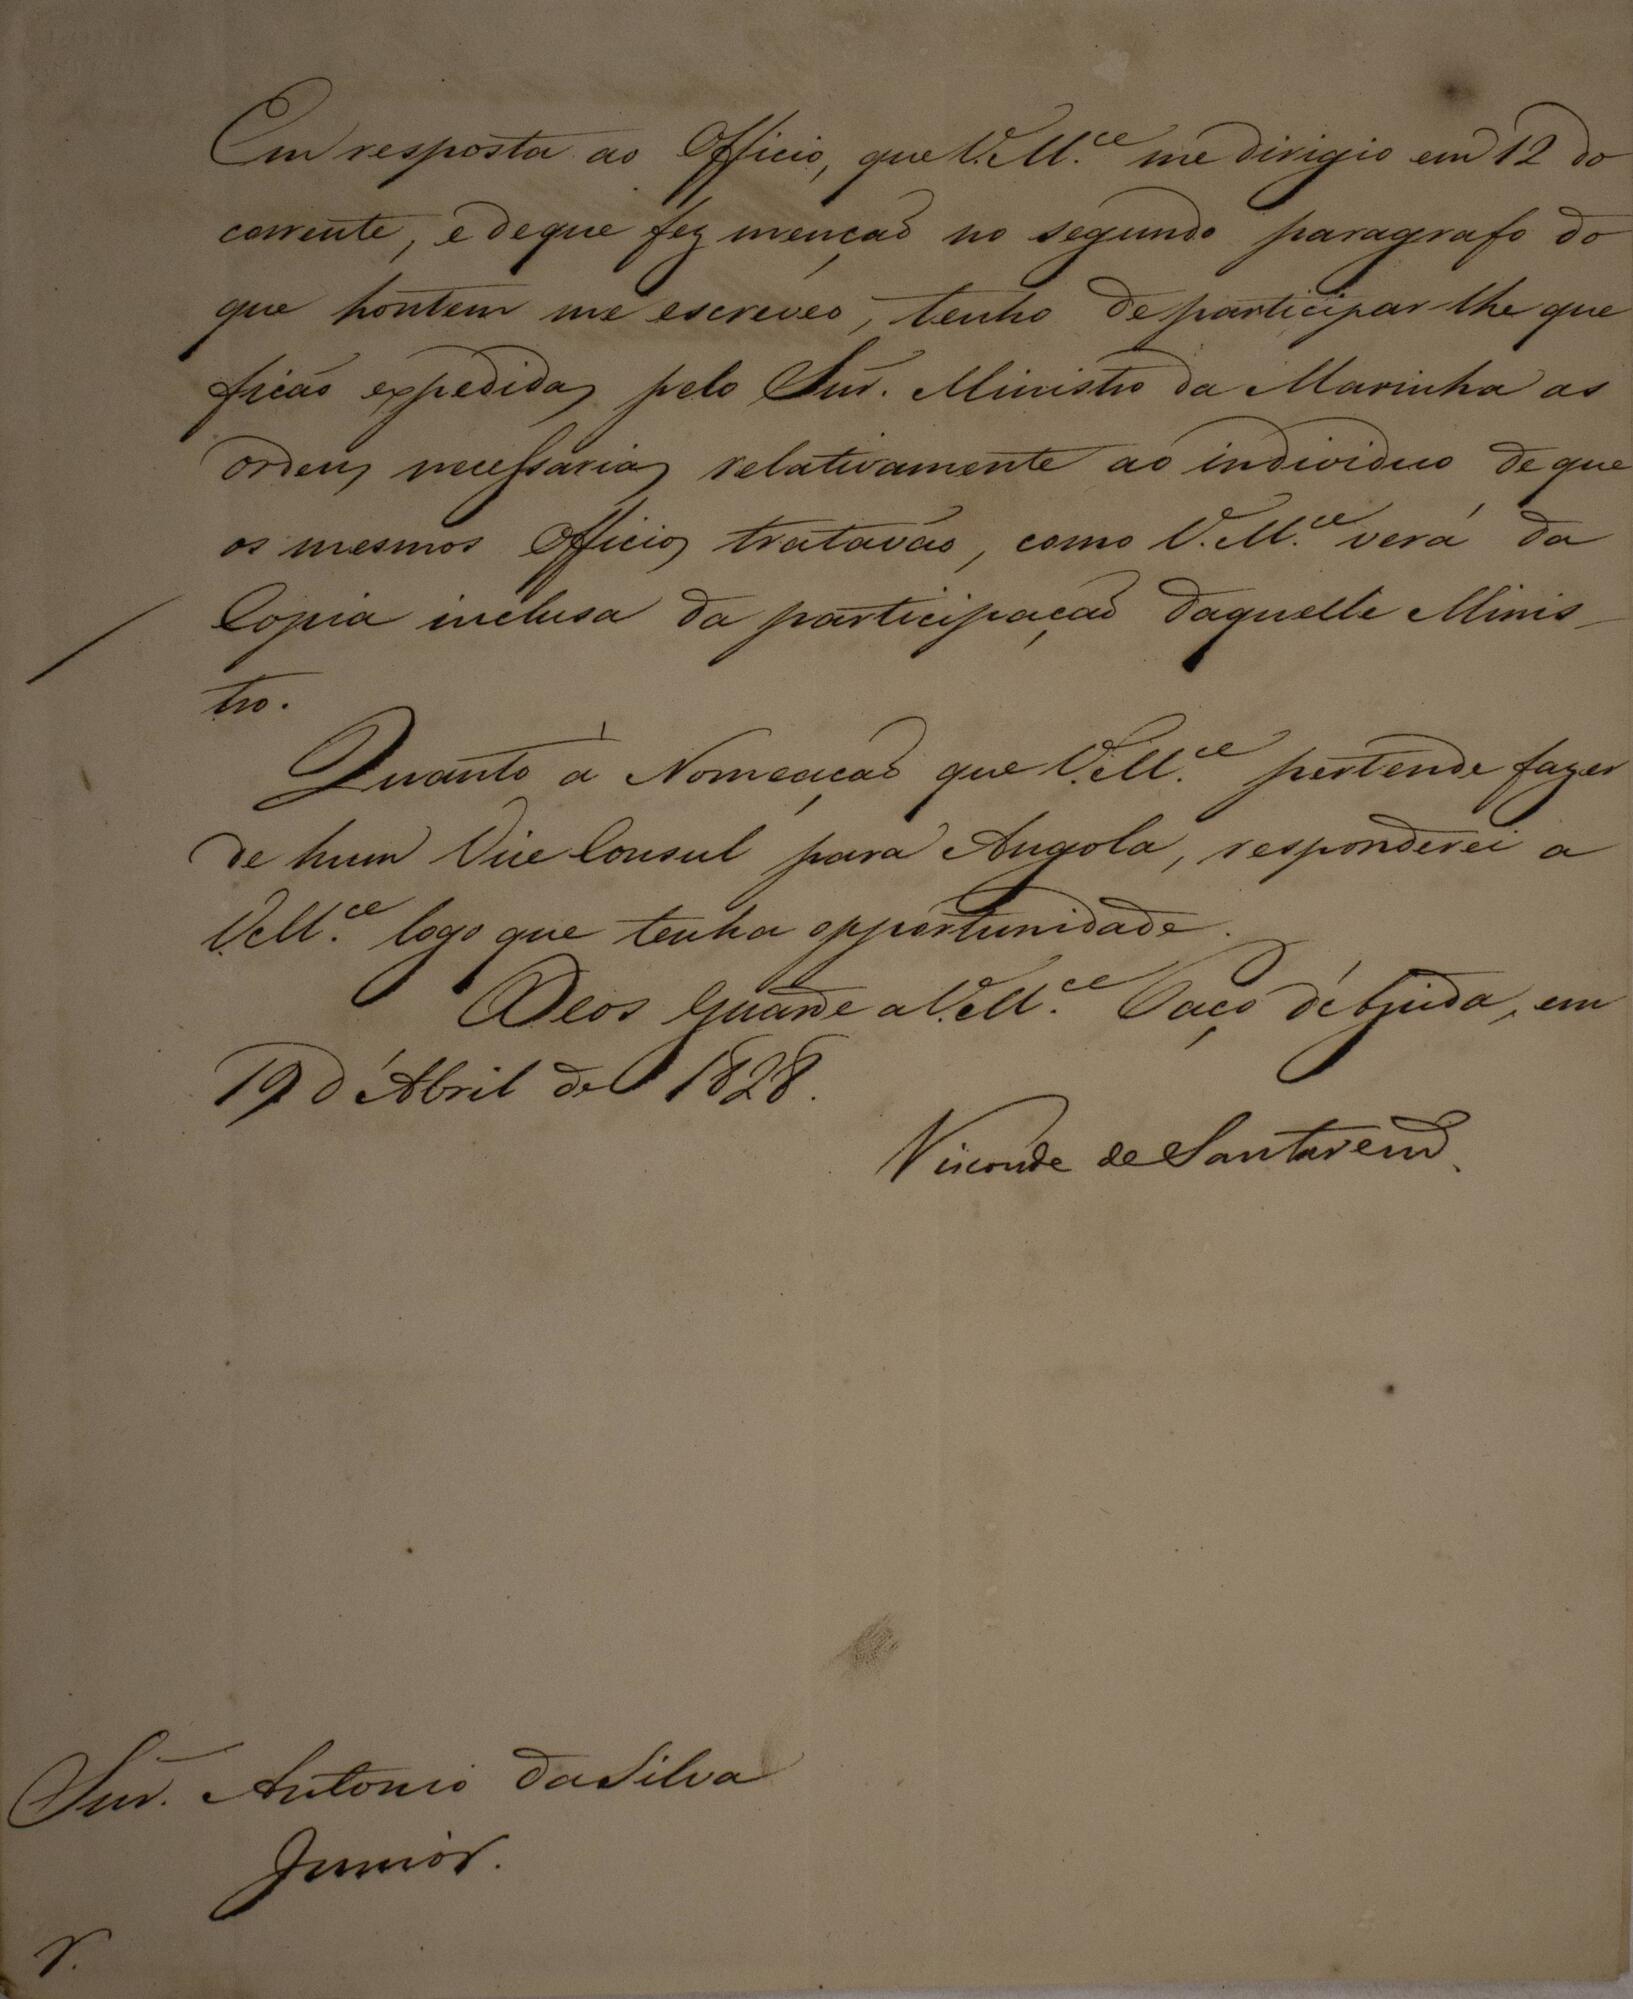 Em resposta ao Officio, que V.M.ce me dirigio em 12 do
corrente, e de que fez menção no segundo paragrafo do
que hontem me escreveo, tenho de participar-lhe que
ficão expedidas pelo Snr. Ministro da Marinha as
ordens necessarias relativamente ao individuo de que
os mesmos Officios tratavão, como V.M.ce verá da
Copia inclusa da participação daquelle Minis-
tro.
Quanto à Nomeação que V.M.ce pertende fazer
de hum Vice Consul para Angola, responderei a
V.M.ce logo que tenha opportunidade.
Deos Guarde a V.M.ce Paço d'Ajuda, em
19 d'Abril de 1828.
Visconde de Santarem.
Snr. Antonio da Silva
Junior.